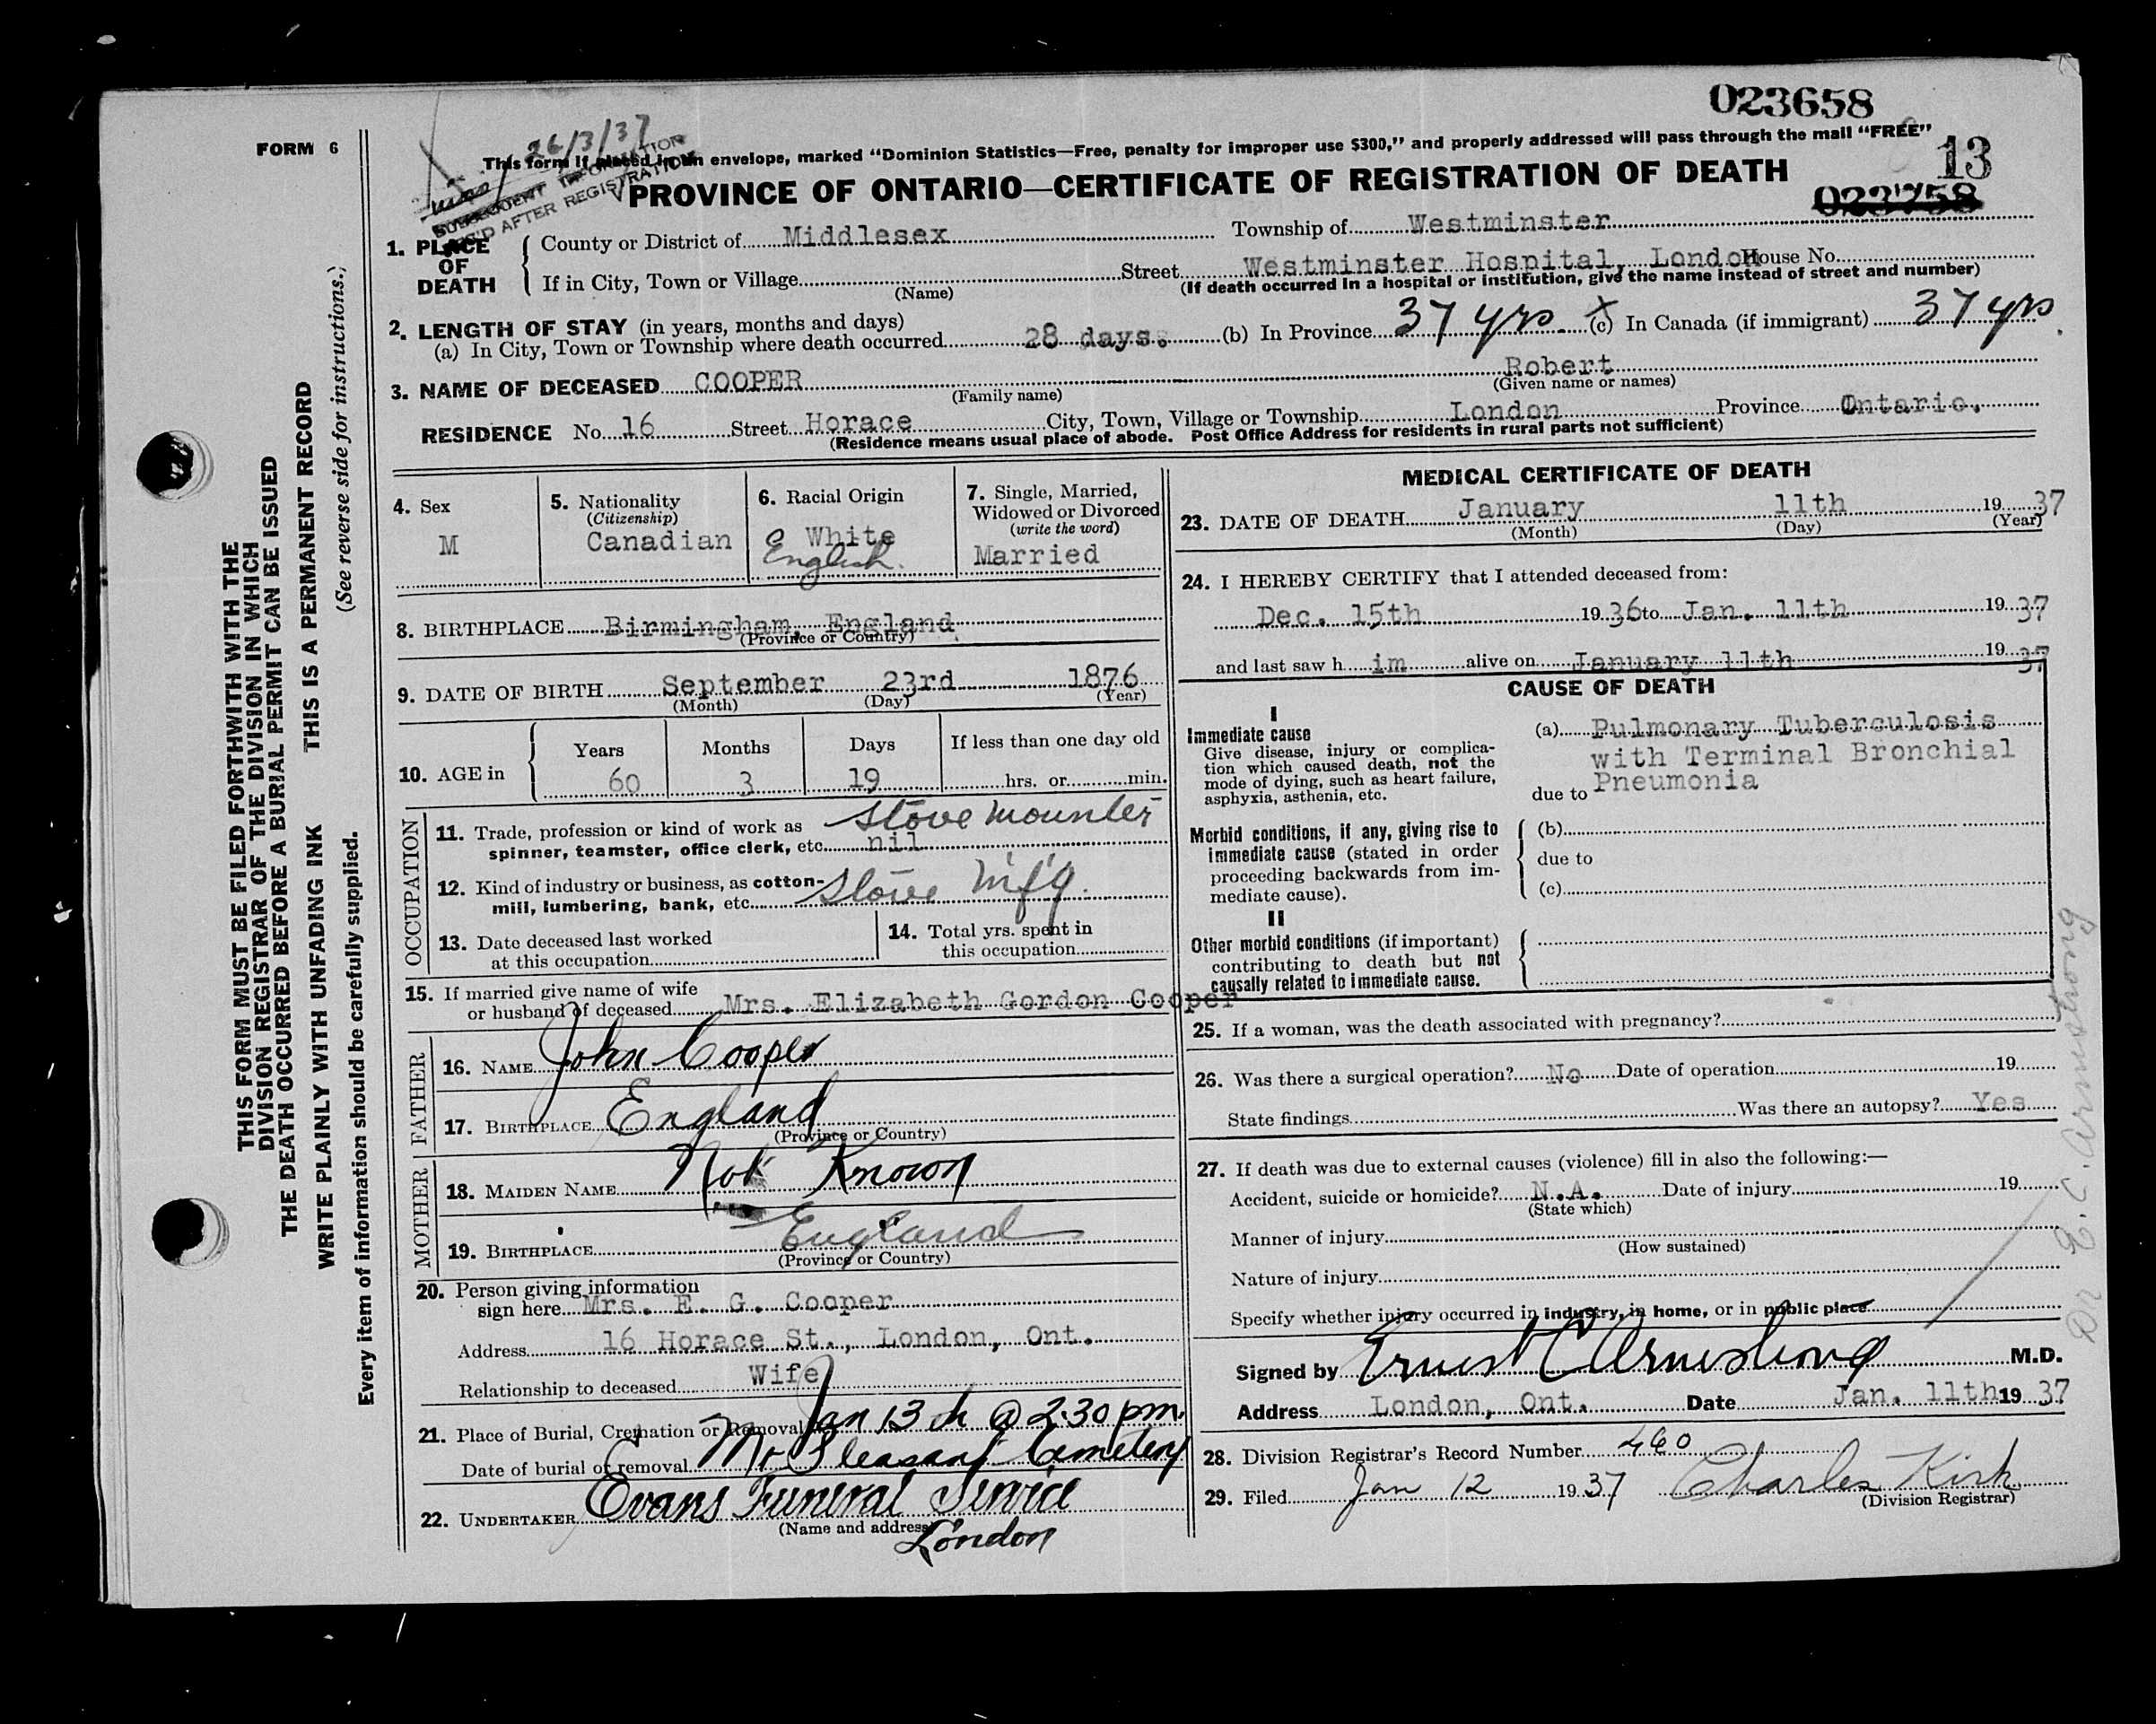 023658
FORM 6
26/3/37
This form if placed in an envelope, marked "Dominion Statistics—Free, penalty for improper use $300," and properly addressed will pass through the mail "FREE"
13
PROVINCE OF ONTARIO—CERTIFICATE OF REGISTRATION OF DEATH
023758
SUBSEQUENT INFORMATION
REC'D AFTER REGISTRATION
1. PLACE OF DEATH
County or District of Middlesex Township of Westminster
If in City, Town or Village Street Westminster Hospital, London House No.
(Name) (If death occurred in a hospital or institution, give the name instead of street and number)
2. LENGTH OF STAY (in years, months and days)
(a) In City, Town or Township where death occurred 28 days. (b) In Province 37 yrs. (c) In Canada (if immigrant) 37 yrs.
3. NAME OF DECEASED COOPER Robert
(Family name) (Given name or names)
RESIDENCE No. 16 Street Horace City, Town, Village or Township London Province Ontario.
(Residence means usual place of abode. Post Office Address for residents in rural parts not sufficient)
4. Sex
M
5. Nationality
(Citizenship)
Canadian
6. Racial Origin
White
English.
7. Single, Married,
Widowed or Divorced
(write the word)
Married
8. BIRTHPLACE Birmingham, England.
(Province or Country)
9. DATE OF BIRTH September 23rd 1876
(Month) (Day) (Year)
10. AGE in
Years Months Days If less than one day old
60 3 19 hrs. or min.
OCCUPATION
11. Trade, profession or kind of work as Stove mounter
spinner, teamster, office clerk, etc. nil
12. Kind of industry or business, as cotton-
mill, lumbering, bank, etc. Stove M'f'g.
13. Date deceased last worked
at this occupation
14. Total yrs. spent in
this occupation
15. If married give name of wife
or husband of deceased Mrs. Elizabeth Gordon Cooper
FATHER
16. NAME John Cooper
17. BIRTHPLACE England
(Province or Country)
MOTHER
18. MAIDEN NAME Not Known
19. BIRTHPLACE England
(Province or Country)
20. Person giving information
sign here Mrs. E. G. Cooper
Address 16 Horace St., London, Ont.
Relationship to deceased Wife
21. Place of Burial, Cremation or Removal Jan 13th @ 2.30 pm.
Date of burial or removal Mt Pleasant Cemetery
22. UNDERTAKER Evans Funeral Service
(Name and address)
London
MEDICAL CERTIFICATE OF DEATH
23. DATE OF DEATH January 11th 1937
(Month) (Day) (Year)
24. I HEREBY CERTIFY that I attended deceased from:
Dec. 15th 1936 to Jan. 11th 1937
and last saw him alive on January 11th 1937
CAUSE OF DEATH
I
Immediate cause
Give disease, injury or complica-
tion which caused death, not the
mode of dying, such as heart failure,
asphyxia, asthenia, etc.
(a) Pulmonary Tuberculosis
with Terminal Bronchial
due to Pneumonia
Morbid conditions, if any, giving rise to
immediate cause (stated in order
proceeding backwards from im-
mediate cause).
(b)
due to
(c)
II
Other morbid conditions (if important)
contributing to death but not
causally related to immediate cause.
25. If a woman, was the death associated with pregnancy?
26. Was there a surgical operation? No Date of operation 19
State findings Was there an autopsy? Yes
27. If death was due to external causes (violence) fill in also the following:—
Accident, suicide or homicide? N.A. Date of injury 19
(State which)
Manner of injury
(How sustained)
Nature of injury
Specify whether injury occurred in industry, in home, or in public place
Signed by Ernest C Armstrong M.D.
Address London, Ont. Date Jan. 11th 1937
28. Division Registrar's Record Number 460
29. Filed Jan 12 1937 Charles Kirk
(Division Registrar)
Dr E. C. Armstrong
THIS FORM MUST BE FILED FORTHWITH WITH THE
DIVISION REGISTRAR OF THE DIVISION IN WHICH
THE DEATH OCCURRED BEFORE A BURIAL PERMIT CAN BE ISSUED
WRITE PLAINLY WITH UNFADING INK THIS IS A PERMANENT RECORD
(See reverse side for instructions.)
Every item of information should be carefully supplied.